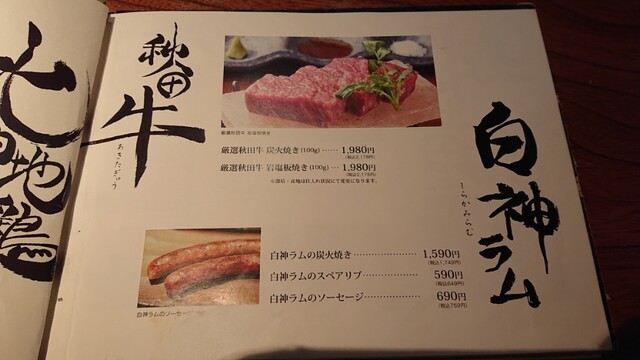 秋田牛
あきたぎゅう
厳選秋田牛 岩塩板焼き
厳選秋田牛 炭火焼き(100g) …… 1,980円
(税込2,178円)
厳選秋田牛 岩塩板焼き(100g) …… 1,980円
(税込2,178円)
※部位・産地は仕入れ状況にて変更になります。
白神ラム
しらかみらむ
白神ラムの炭火焼き…………… 1,590円
(税込1,749円)
白神ラムのスペアリブ………… 590円
(税込649円)
白神ラムのソーセージ………… 690円
(税込759円)
白神ラムのソーセージ
地鶏